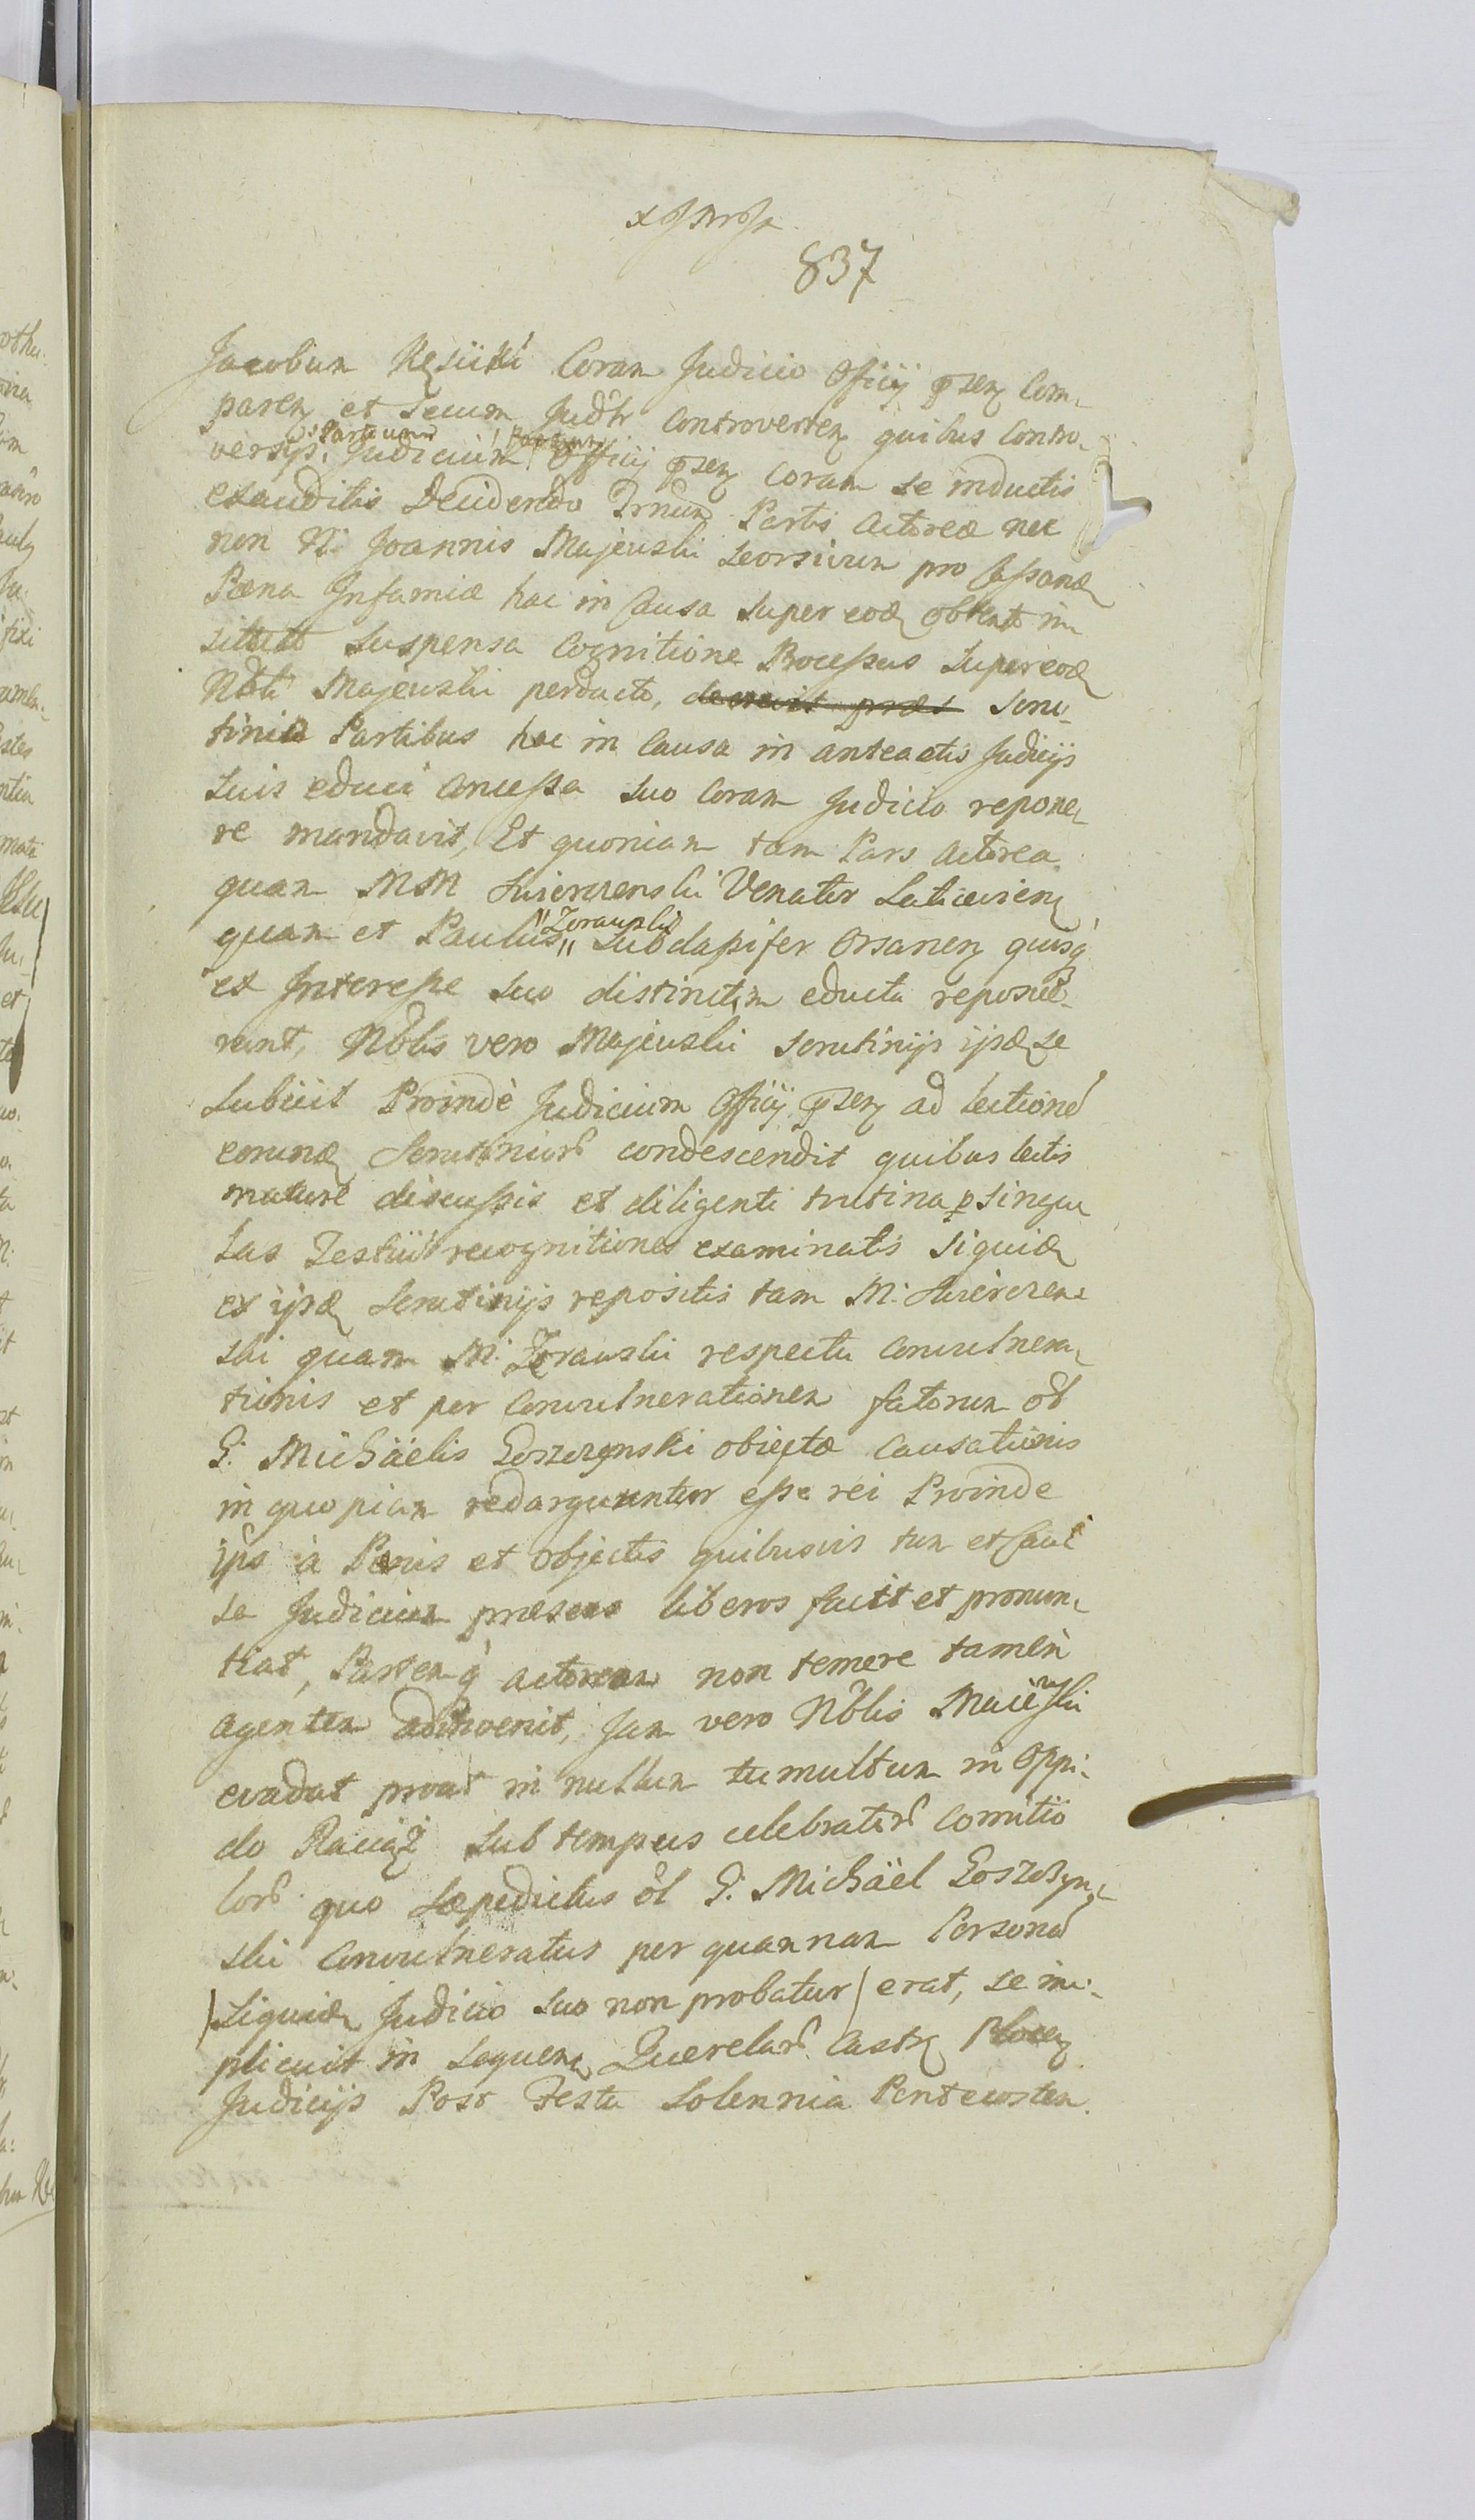 837
Jacobum Coram Judicio Officij pñseñ Com-
pareñ et Secum Judr Controverteñ quibus Contro-
versijs Partium Judicium Officij pñseñ Coram se inductis
exauditis Decidendo Trnum Partis Actoreæ nec
non N: Joannis Majewski seorsivum pro Cassanda
Pæna Infamiæ hac in Causa super eod obtent in-
suspensa Cognitione Processus super eod
Nobli Majewski perducto, decrevit præs Scru-
tinia Partibus hac in Causa in anteactis Judicijs
suis educi Concessa suo Coram Judicio repone-
re mandavit, Et quoniam tam Pars Actorea
quam MM Swierczenski Venator Laticzvien
quam et Paulus "Zorawski" Subdapifer Orsanen quisq
ex Interesse suo distinctim educta reposue-
runt, Noblis vero Majewski Scrutinijs ijsd se
subiicit Proinde Judicium Officij pñseñ ad lectione
eorund Scrutinior condescendit quibus lectis
mature discussis et diligenti trutina p singu
las Testiu recognitiones examinatis siquid
ex ijsd Scrutinijs repositis tam M: Swierczen-
ski quam M: Zorawski respectu Convulnera-
tionis et per Convulnerationem fatorum ol
G: Michäelis Goszczynski obiectæ Causationis
in quopiam redarguuntur esse rei Proinde
ips à Pænis et objectis quibusvis tum et Cau
sa Judicium præsens liberos facit et pronun-
tiat, Partem q actoream non temere tamen
agentem adinvenit, Jam vero Noblis Maiewski
evadat prout in nullum tumultum in Oppi-
do Raciąż sub tempus celebrator Comitio
lor quo sæpedictus ol G: Michäel Goszczyn-
ski Convulneratus per quamnam Persona
/siquid Judicio suo non probatur/ erat, se im-
plicuit in sequen Querelar Castr Plocen
Judicijs Post Festa Solennia Pentecosten.